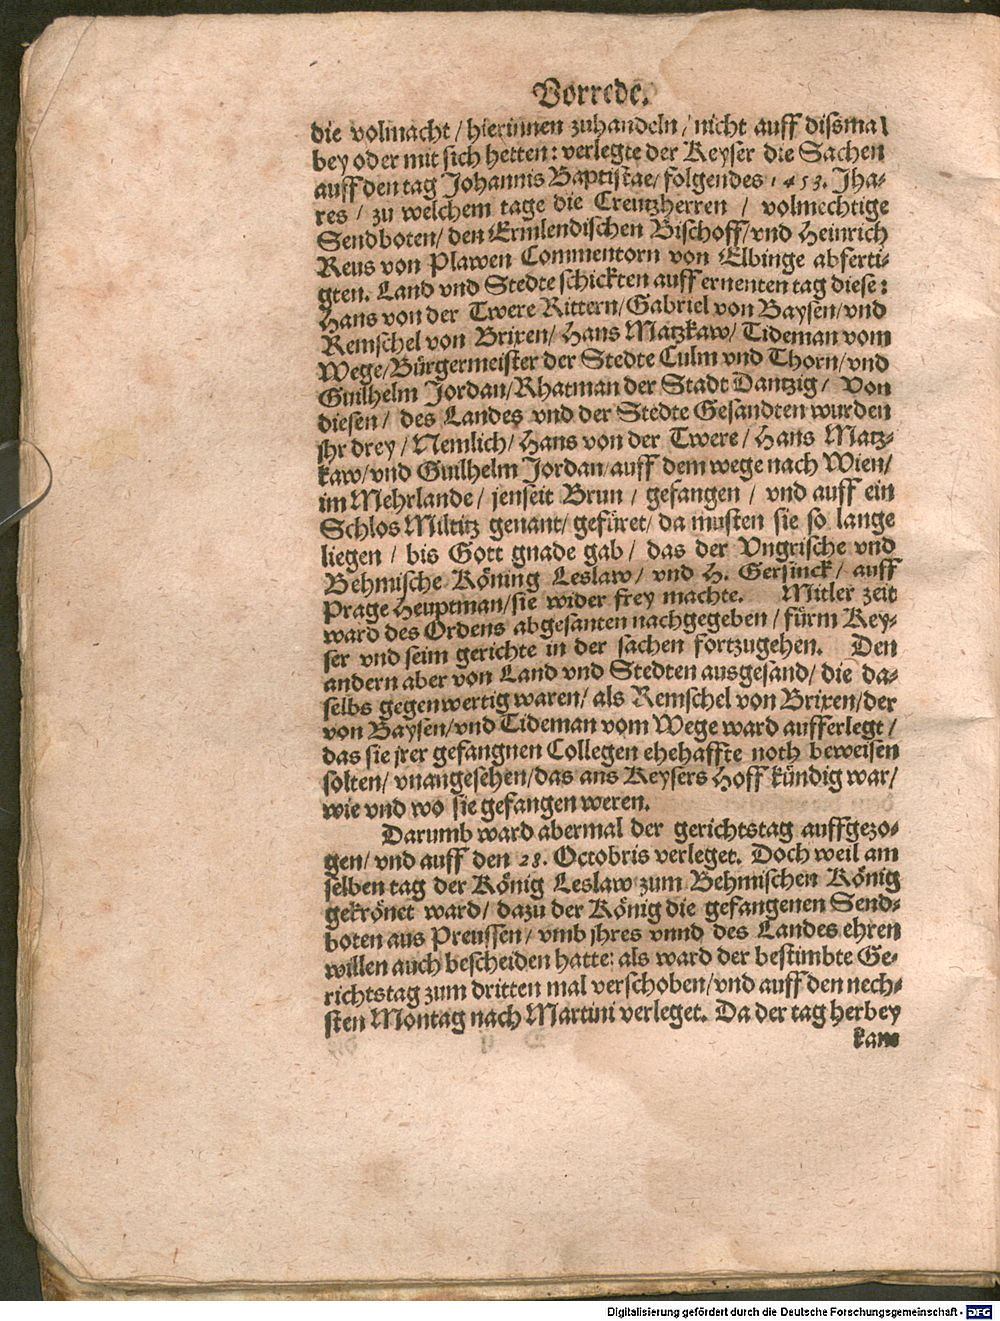 Vorrede.
die volmacht / hierinnen zuhandeln / nicht auff dißmal
bey oder mit sich hetten: verlegte der Keyser die Sachen
auff den tag Johannis Baptistae / folgendes 1453. Jha-
res / zu welchem tage die Creutzherren / volmechtige
Sendboten / den Ermlendischen Bischoff / vnd Heinrich
Reus von Plawen Commentorn von Elbinge abferti-
gten. Land vnd Stedte schickten auff ernenten tag diese:
Hans von der Twere Rittern / Gabriel von Baysen / vnd
Remschel von Brixen / Hans Matzkaw / Tideman vom
Wege / Bürgermeister der Stedte Culm vnd Thorn / vnd
Guilhelm Jordan / Rhatman der Stadt Dantzig / Von
diesen / des Landes vnd der Stedte Gesandten wurden
jhr drey / Nemlich / Hans von der Twere / Hans Matz-
kaw / vnd Guilhelm Jordan / auff dem wege nach Wien /
im Mehrlande / jenseit Brun / gefangen / vnd auff ein
Schlos Miltitz genant / gefüret / da musten sie so lange
liegen / bis Gott gnade gab / das der Vngrische vnd
Behmische Köning Leslaw / vnd H. Gersinck / auff
Prage Heuptman / sie wider frey machte. Mitler zeit
ward des Ordens abgesanten nachgegeben / fürm Key-
ser vnd seim gerichte in der sachen fortzugehen. Den
andern aber von Land vnd Stedten ausgesand / die da-
selbs gegenwertig waren / als Remschel von Brixen / der
von Baysen / vnd Tideman vom Wege ward aufferlegt /
das sie jrer gefangnen Collegen ehehaffte noth beweisen
solten / vnangesehen / das ans Keysers Hoff kündig war /
wie vnd wo sie gefangen weren.
Darumb ward abermal der gerichtstag auffgezo-
gen / vnd auff den 28. Octobris verleget. Doch weil am
selben tag der König Leslaw zum Behmischen König
gekrönet ward / dazu der König die gefangenen Send-
boten aus Preussen / vmb jhres vnnd des Landes ehren
willen auch bescheiden hatte: als ward der bestimbte Ge-
richtstag zum dritten mal verschoben / vnd auff den nech-
sten Montag nach Martini verleget. Da der tag herbey
kam
Digitalisierung gefördert durch die Deutsche Forschungsgemeinschaft - DFG